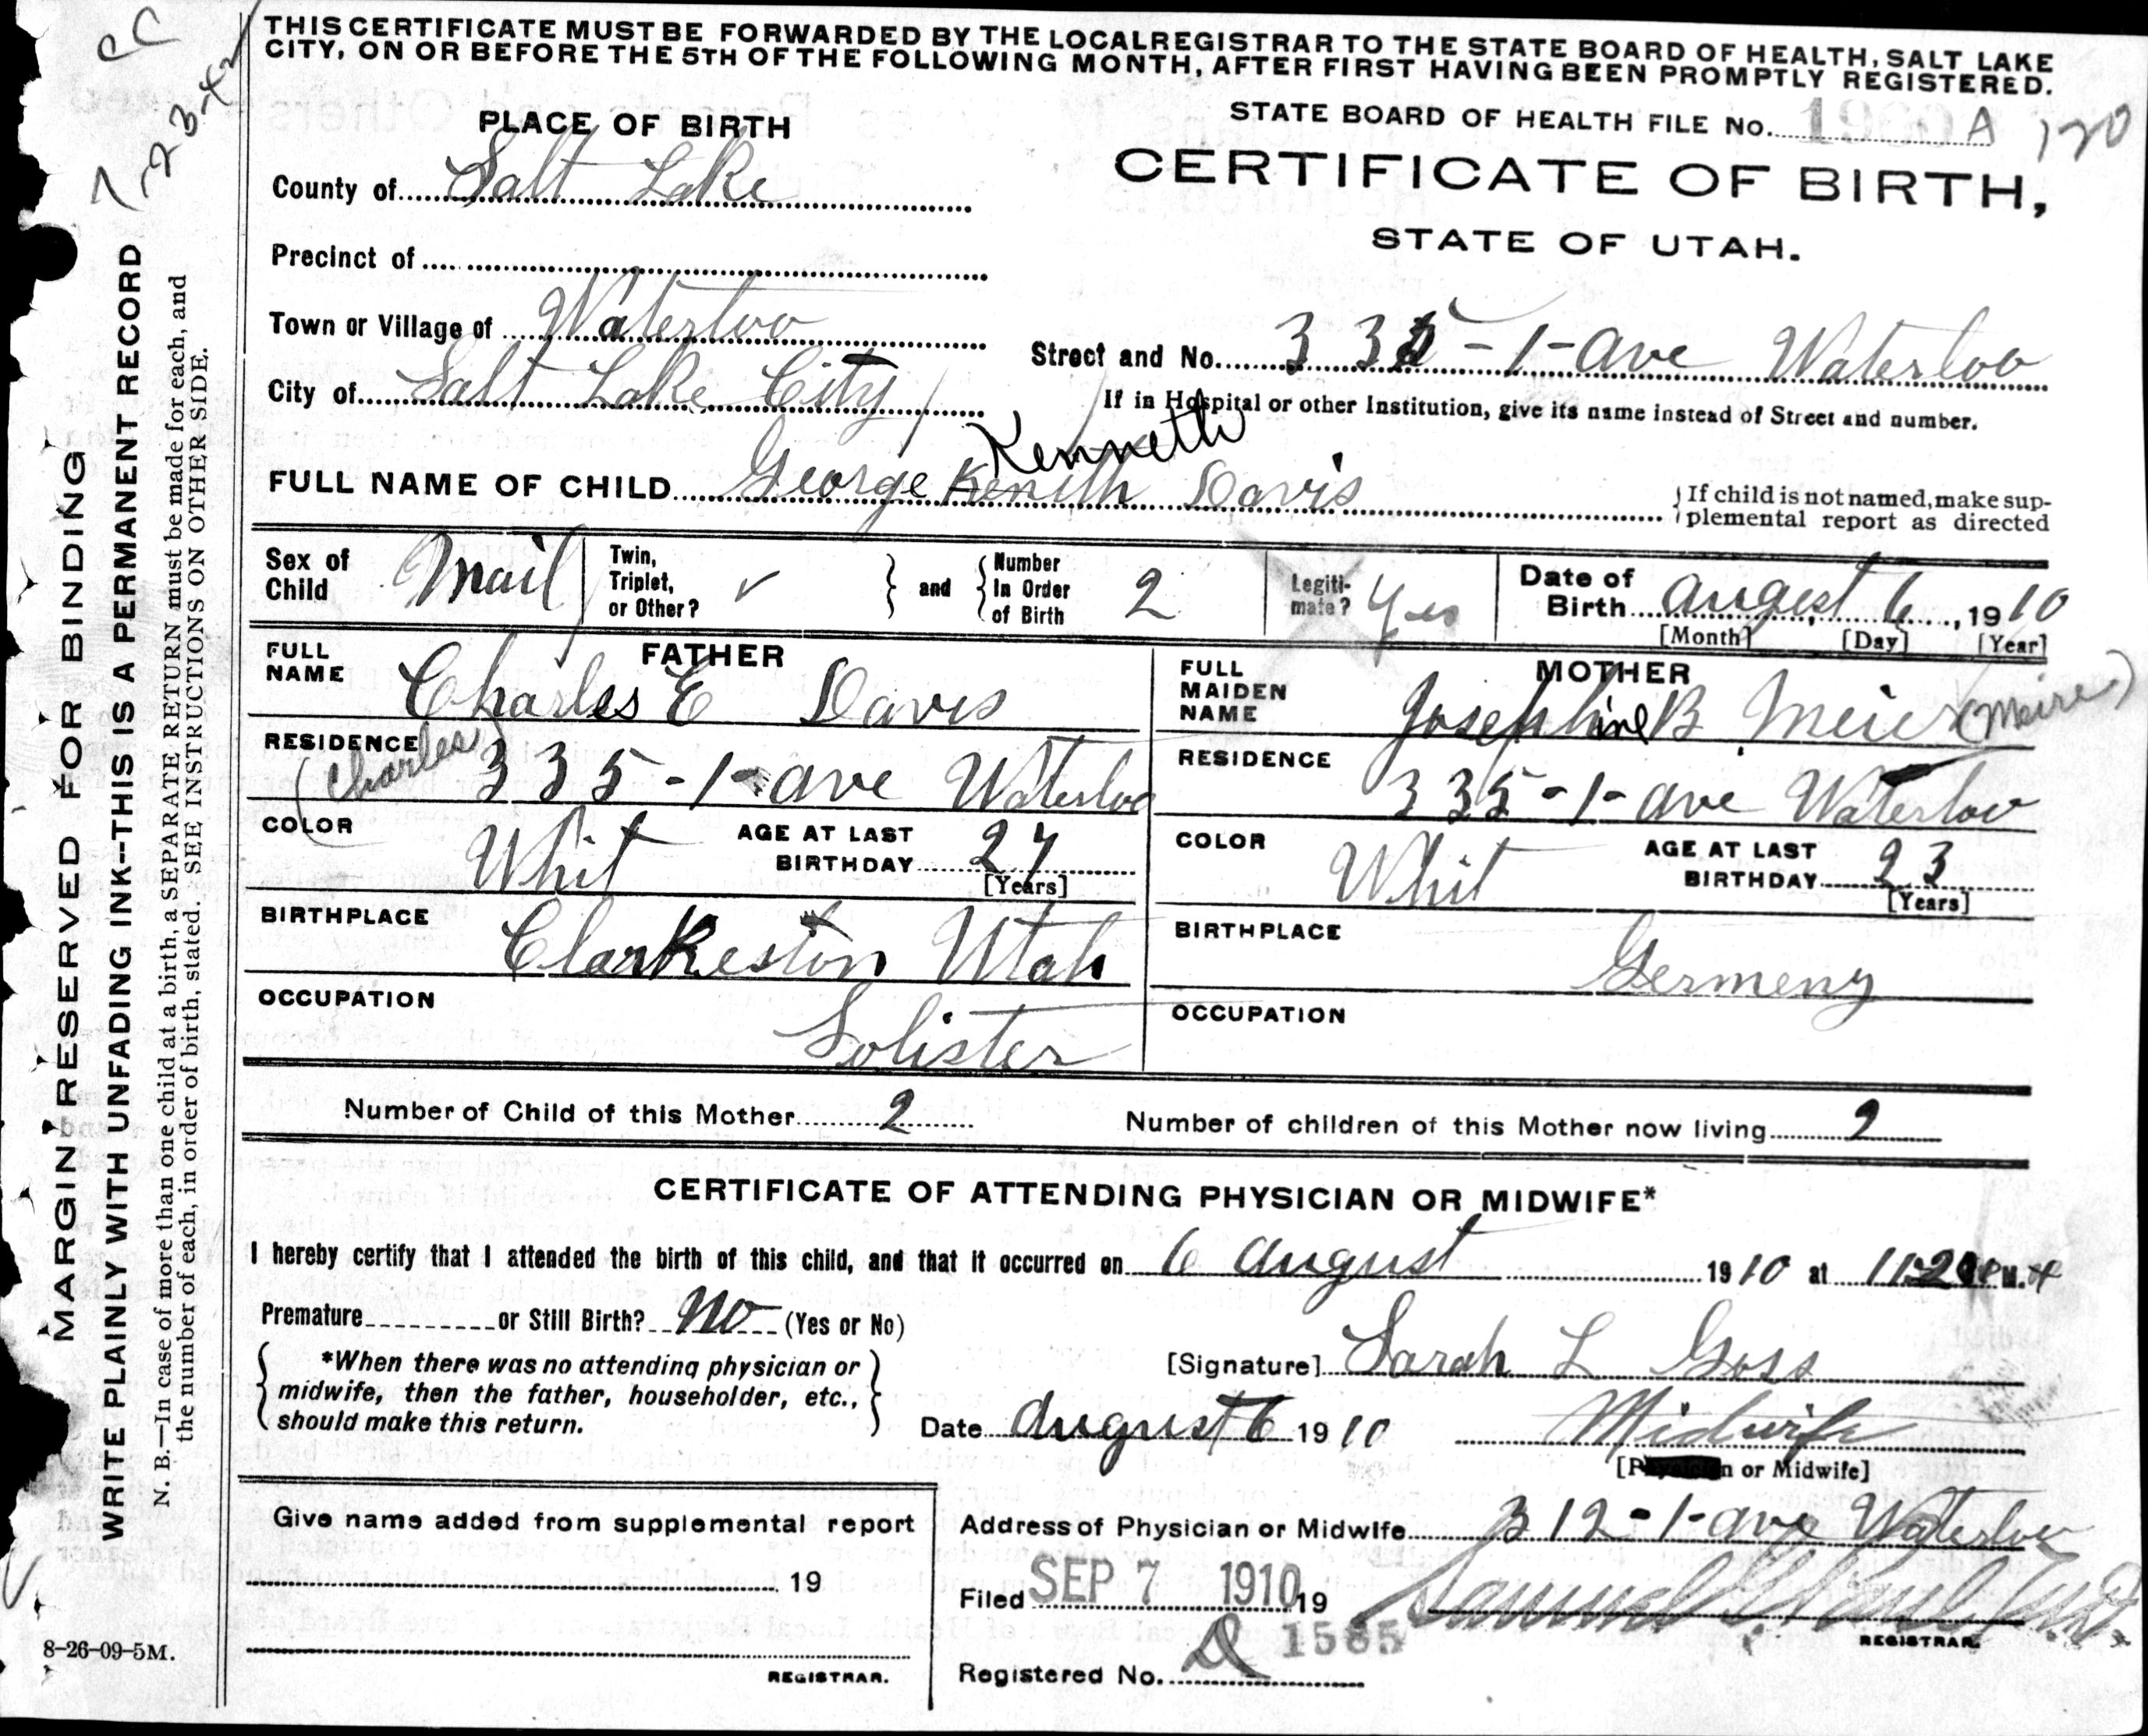 THIS CERTIFICATE MUST BE FORWARDED BY THE LOCAL REGISTRAR TO THE STATE BOARD OF HEALTH, SALT LAKE
CITY, ON OR BEFORE THE 5TH OF THE FOLLOWING MONTH, AFTER FIRST HAVING BEEN PROMPTLY REGISTERED.
STATE BOARD OF HEALTH FILE No. A 120
PLACE OF BIRTH
CERTIFICATE OF BIRTH,
STATE OF UTAH.
County of Salt Lake
Precinct of
Town or Village of Waterloo
Street and No. 335-1-ave Waterloo
City of Salt Lake City
If in Hospital or other Institution, give its name instead of Street and number.
Kenneth
FULL NAME OF CHILD George Kenith Davis
If child is not named, make sup-
plemental report as directed
Sex of Child Mail
Twin, Triplet, or Other? and Number In Order of Birth 2
Legiti-mate? Yes
Date of Birth august 6, 1910
[Month] [Day] [Year]
FATHER
FULL NAME Charles E Davis
RESIDENCE 335-1-ave Waterloo
(Charles)
COLOR Whit
AGE AT LAST BIRTHDAY 27
[Years]
BIRTHPLACE Clarkeston Utah
OCCUPATION Solister
MOTHER
FULL MAIDEN NAME Josephine B Meier (Meire)
RESIDENCE 335-1-ave Waterloo
COLOR Whit
AGE AT LAST BIRTHDAY 23
[Years]
BIRTHPLACE Germeny
OCCUPATION
Number of Child of this Mother 2
Number of children of this Mother now living 2
CERTIFICATE OF ATTENDING PHYSICIAN OR MIDWIFE*
I hereby certify that I attended the birth of this child, and that it occurred on 6 august 1910 at M.
Premature or Still Birth? no (Yes or No)
*When there was no attending physician or
midwife, then the father, householder, etc.,
should make this return.
[Signature] Sarah L Goss
Date august 6 1910
Midwife
or Midwife]
Give name added from supplemental report
19
REGISTRAR.
Address of Physician or Midwife 312-1-ave Waterloo
Filed SEP 7 1910 19
Samuel G. Paul M.D.
REGISTRAR.
Registered No. 1565
MARGIN RESERVED FOR BINDING
WRITE PLAINLY WITH UNFADING INK--THIS IS A PERMANENT RECORD
N. B.—In case of more than one child at a birth, a SEPARATE RETURN must be made for each, and
the number of each, in order of birth, stated. SEE INSTRUCTIONS ON OTHER SIDE.
8-26-09-5M.